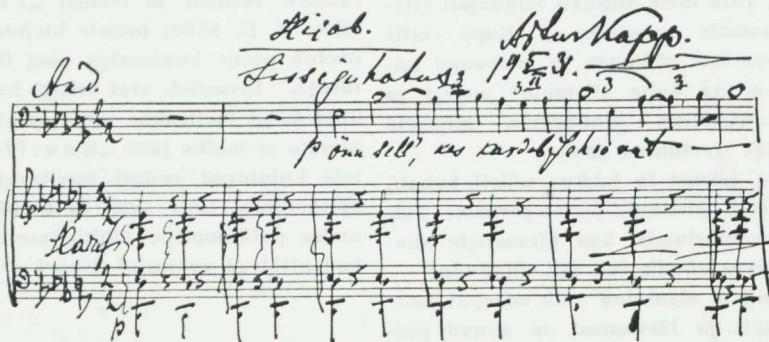 Hiiob.
Artur Kapp.
Sissejuhatus
19 5/II 31.
And.
Õnn sell, kes kardab Jehoovat
Harfe
p